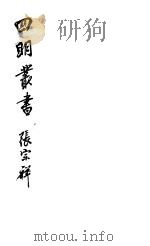 四明叢書
張宗祥
mtoou.info
mtoou.info